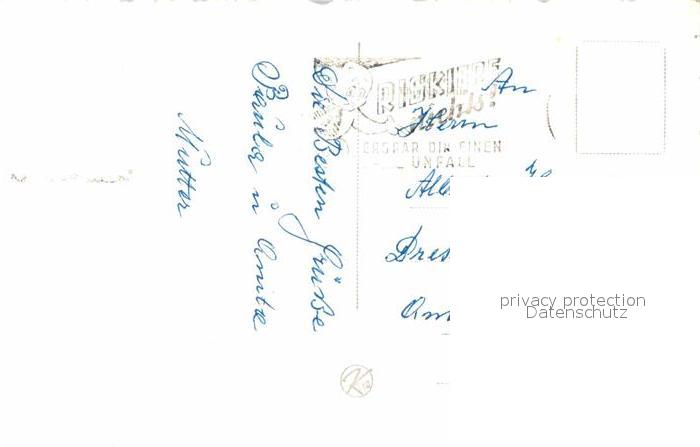 Die Besten Grüße
Paula u Anita
Mutter
RISKIERE
nichts!
ERSPAR DIR EINEN
UNFALL
An
Herrn
Dres
privacy protection
Datenschutz